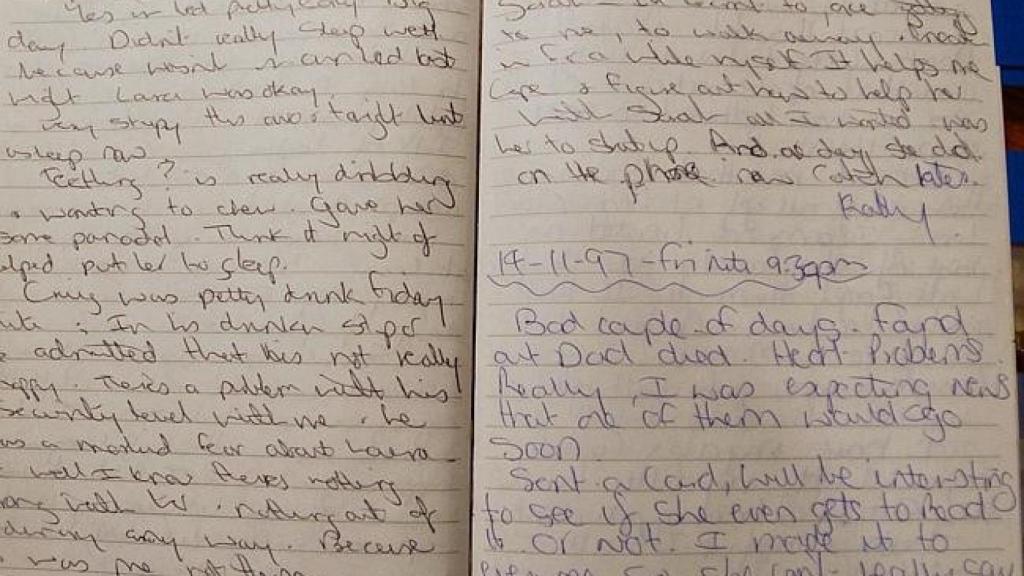 Yes in bed pretty early. Big
day Didn't really sleep well
because wasn't in bed last
night Laura was okay.
very sleepy this avo & tonight
asleep now
Teething? is really dribbling
& wanting to chew. Gave her
some panadol. Think it might of
helped put her to sleep.
Craig was pretty drunk Friday
nite. In his drunken
he admitted that he's not really
happy. There's a problem with his
security level with me. he
has a marked fear about Laura
well I know theres nothing
wrong with her. nothing out of
any way. Because
was me
to
is me, to walk away.
a while myself. It helps me
Cope & figure out how to help her
With Sarah all I wanted was
her to shutup. And. she did.
on the phone now Catch later.
Kathy
14-11-97 - Fri nite 9.30pm
Bad couple of days. Found
out Dad died. Heart Problems
Really, I was expecting news
that one of them would go
soon
Sent a Card, will be interesting
to see if She even gets to Read
it or not. I made it to
so she can't really say